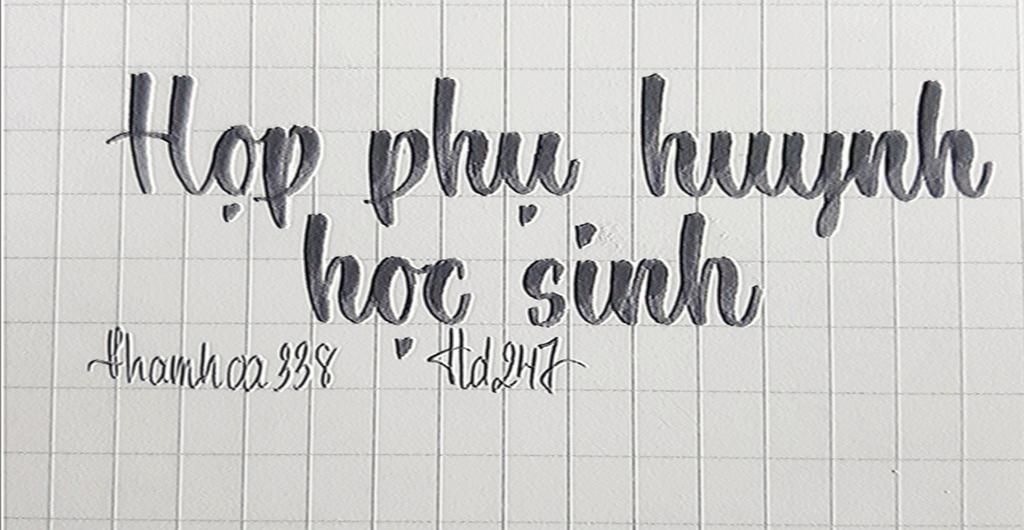 Họp phụ huynh
học sinh
thamhoa338 Hd247